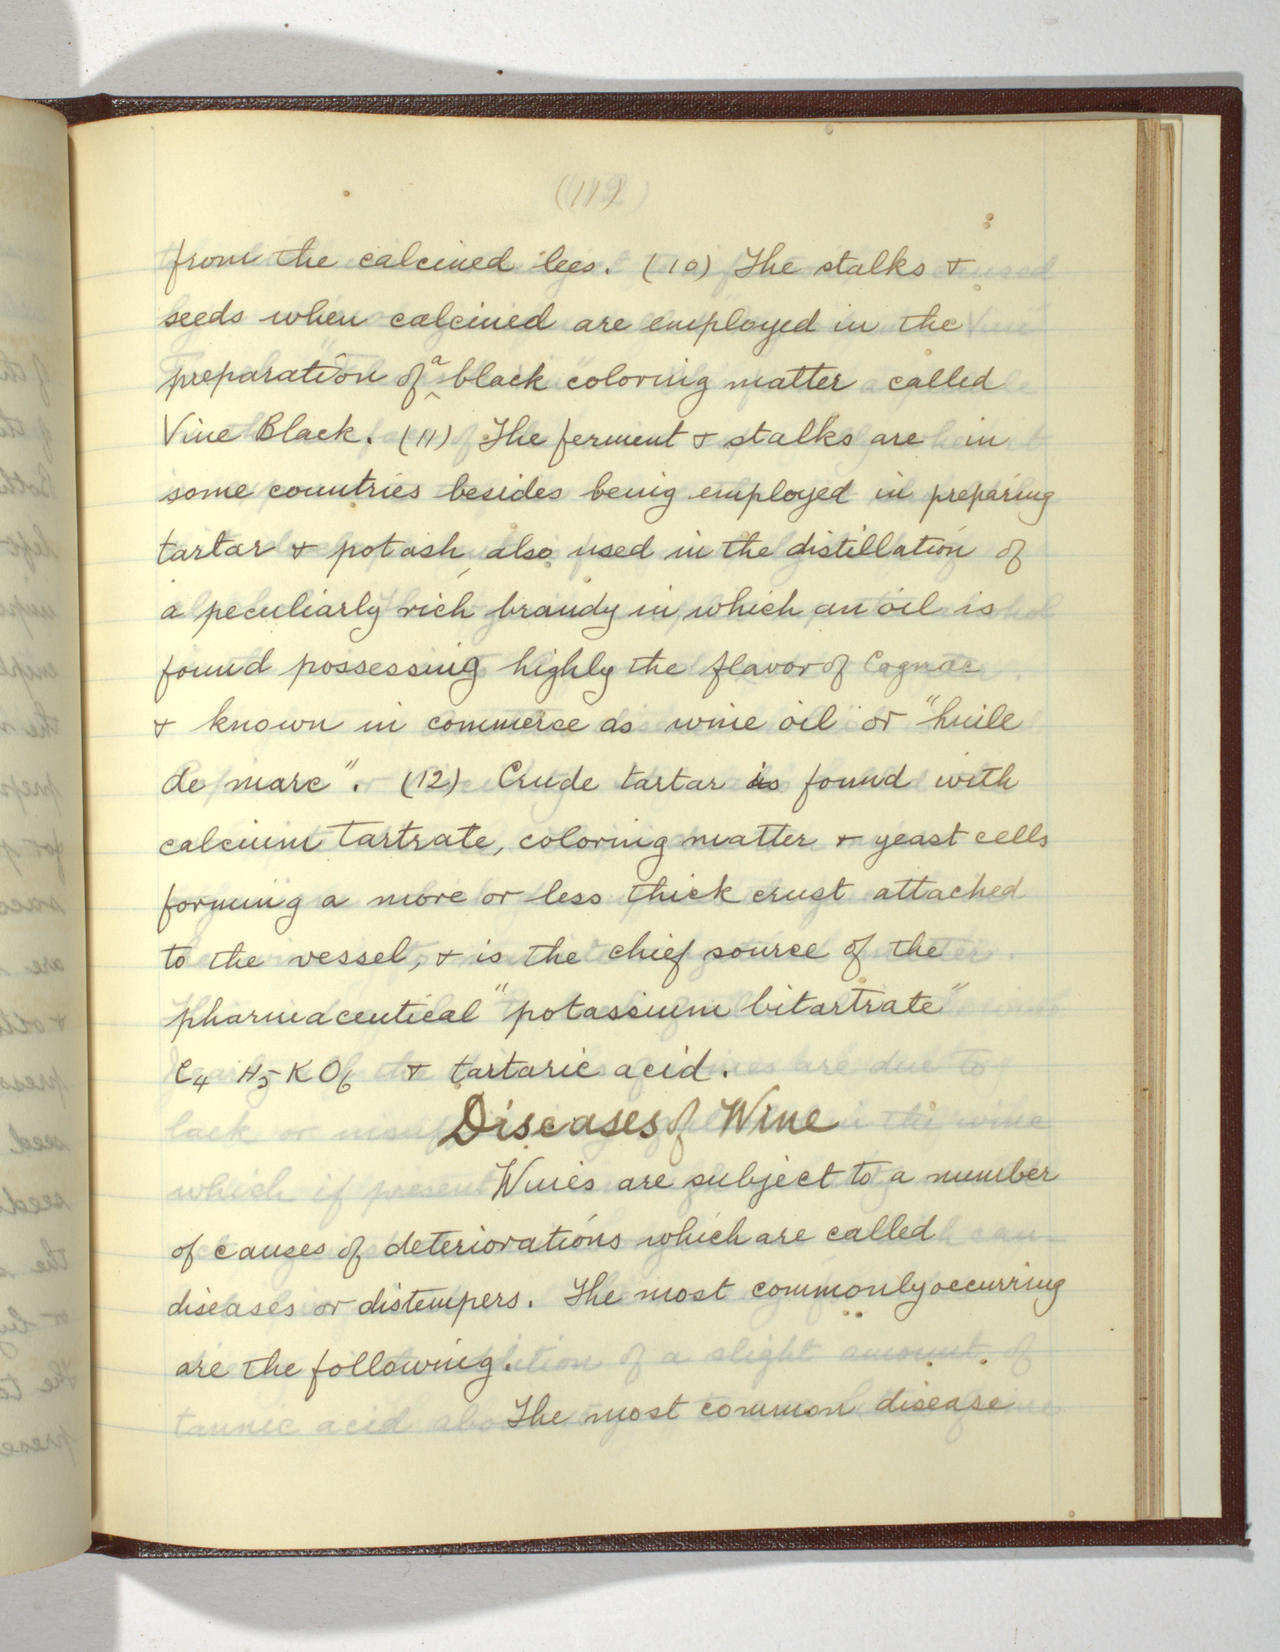 from the calcined lees. (10) The stalks &
seeds when calcined are employed in the
preparation of a black coloring matter called
Vine Black. (11) The ferment & stalks are in
some countries besides being employed in preparing
tartar & potash, also used in the distillation of
a peculiarly rich brandy in which an oil is
found possessing highly the flavor of Cognac
& known in commerce as wine oil or "huile
de marc". (12) Crude tartar is found with
calcium tartrate, coloring matter & yeast cells
forming a more or less thick crust attached
to the vessel, & is the chief source of the
pharmaceutical "potassium bitartrate"
C4 H5 K O6 & tartaric acid.
Diseases of Wine
Wines are subject to a number
of causes of deteriorations which are called
diseases or distempers. The most commonly occurring
are the following.
The most common disease